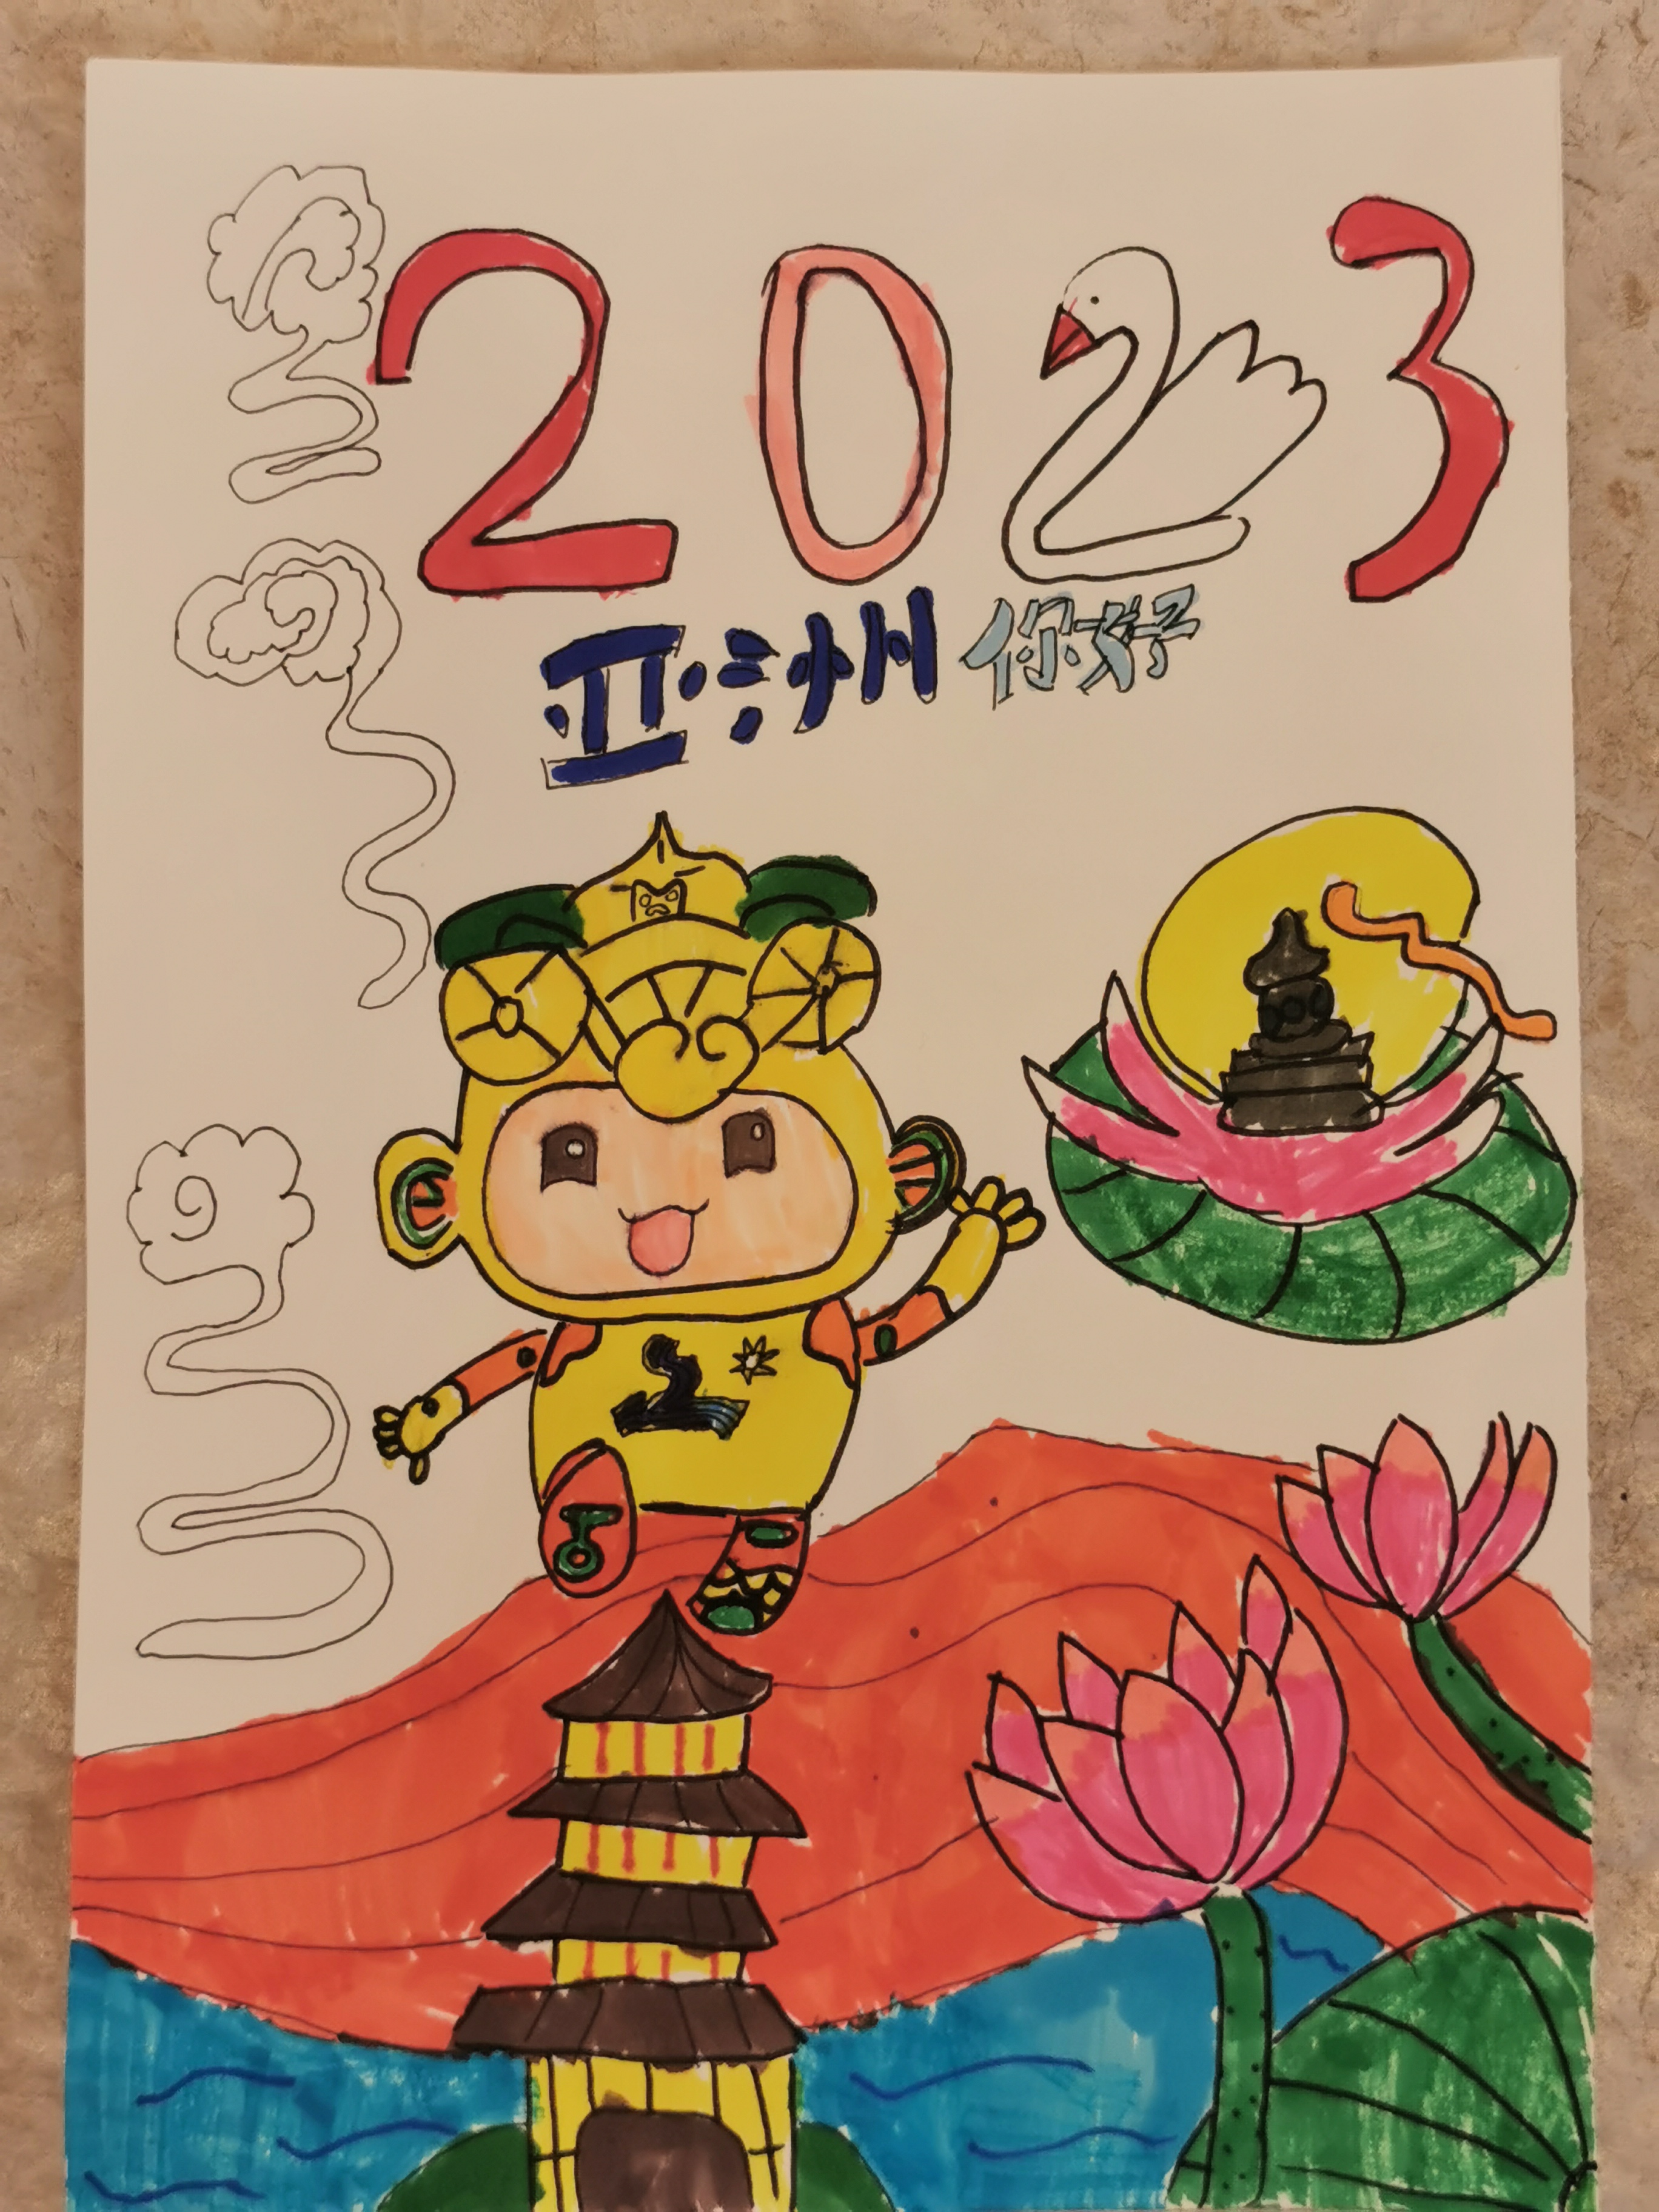 2023
亚洲 你好